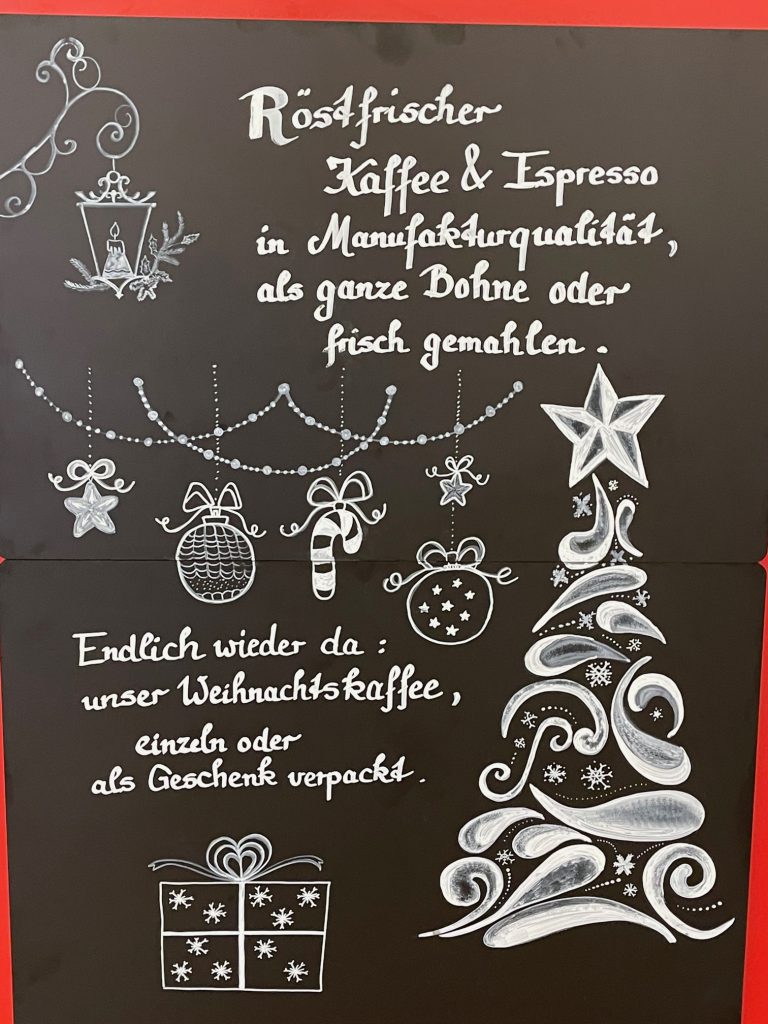 Röstfrischer
Kaffee & Espresso
in Manufakturqualität,
als ganze Bohne oder
frisch gemahlen.
Endlich wieder da:
unser Weihnachtskaffee,
einzeln oder
als Geschenk verpackt.